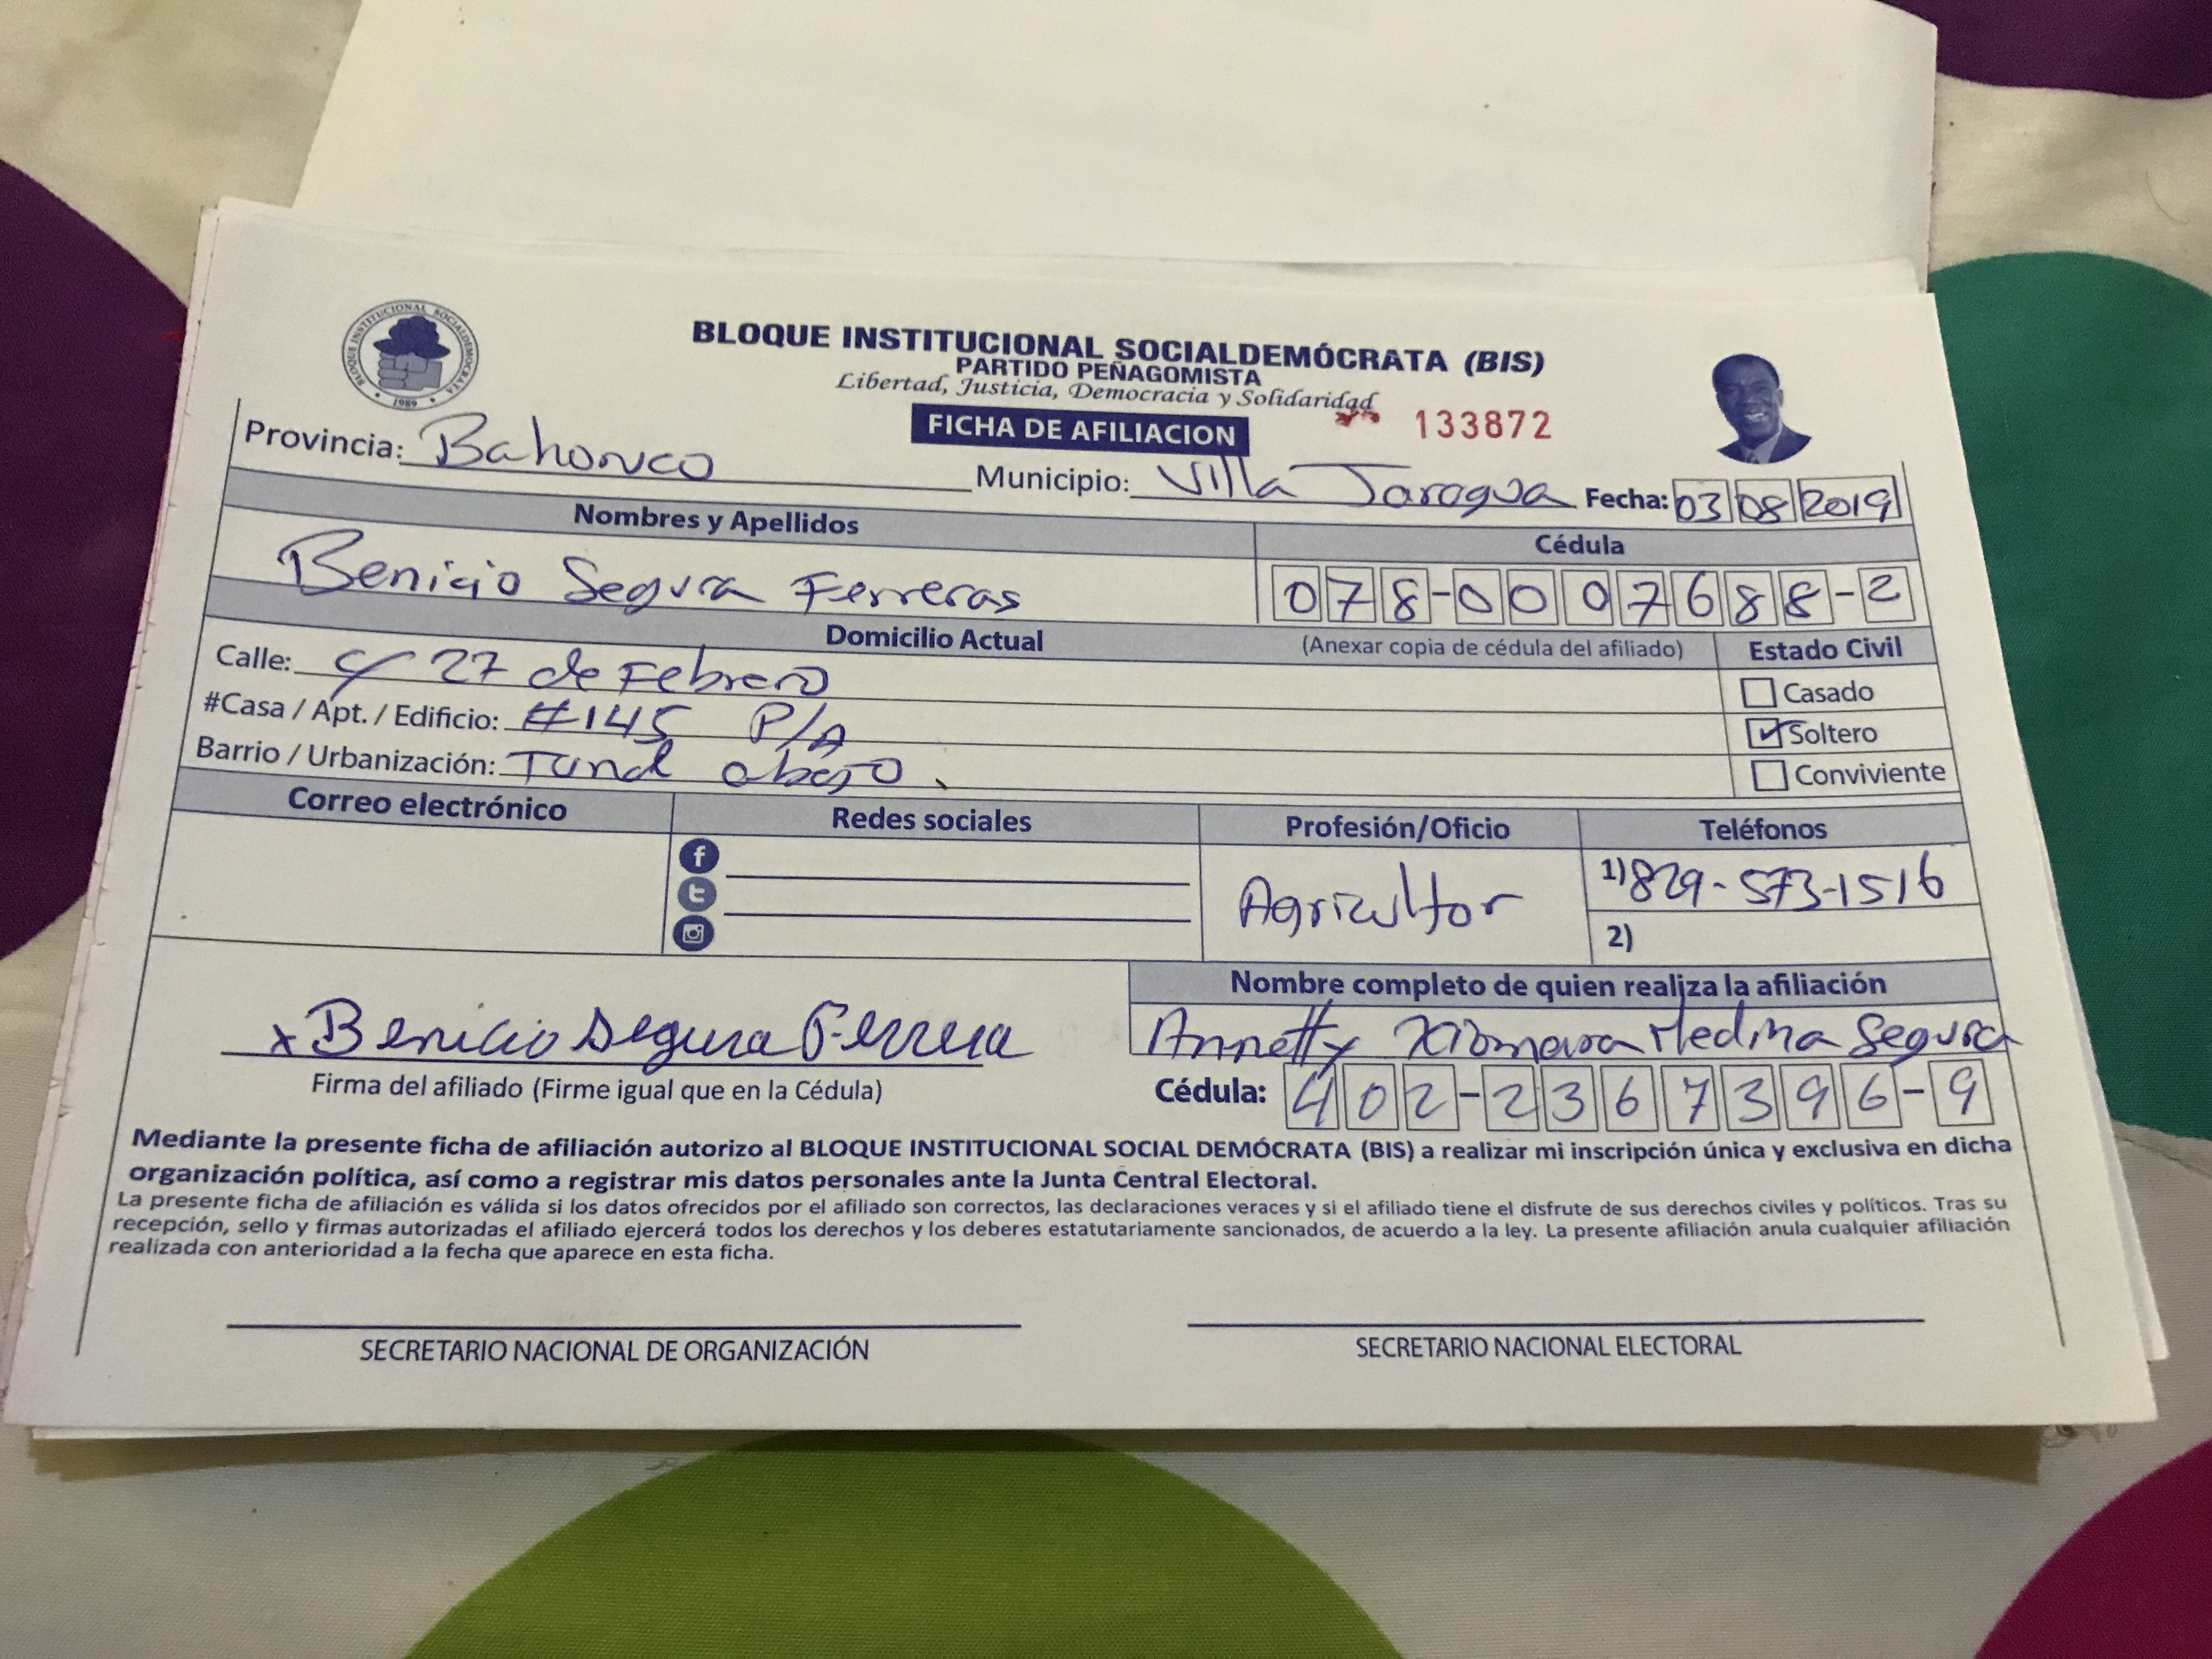 BLOQUE INSTITUCIONAL SOCIALDEMOCRATA
1989
BLOQUE INSTITUCIONAL SOCIALDEMÓCRATA (BIS)
PARTIDO PEÑAGOMISTA
Libertad, Justicia, Democracia y Solidaridad
FICHA DE AFILIACION 133872
Provincia: Bahoruco Municipio: Villa Jaragua Fecha: 03 08 2019
Nombres y Apellidos Cédula
Benicio Segura Ferreras 078-0007688-2
Domicilio Actual (Anexar copia de cédula del afiliado) Estado Civil
Calle: c/ 27 de Febrero Casado
#Casa / Apt. / Edificio: #145 P/A Soltero
Barrio / Urbanización: abajo. Conviviente
Correo electrónico Redes sociales Profesión/Oficio Teléfonos
Agricultor 1) 829-573-1516
2)
Nombre completo de quien realiza la afiliación
x Benicio Segura Ferrera Annetty Xiomara Medina Segura
Firma del afiliado (Firme igual que en la Cédula) Cédula: 402-2367396-9
Mediante la presente ficha de afiliación autorizo al BLOQUE INSTITUCIONAL SOCIAL DEMÓCRATA (BIS) a realizar mi inscripción única y exclusiva en dicha
organización política, así como a registrar mis datos personales ante la Junta Central Electoral.
La presente ficha de afiliación es válida si los datos ofrecidos por el afiliado son correctos, las declaraciones veraces y si el afiliado tiene el disfrute de sus derechos civiles y políticos. Tras su
recepción, sello y firmas autorizadas el afiliado ejercerá todos los derechos y los deberes estatutariamente sancionados, de acuerdo a la ley. La presente afiliación anula cualquier afiliación
realizada con anterioridad a la fecha que aparece en esta ficha.
SECRETARIO NACIONAL DE ORGANIZACIÓN SECRETARIO NACIONAL ELECTORAL